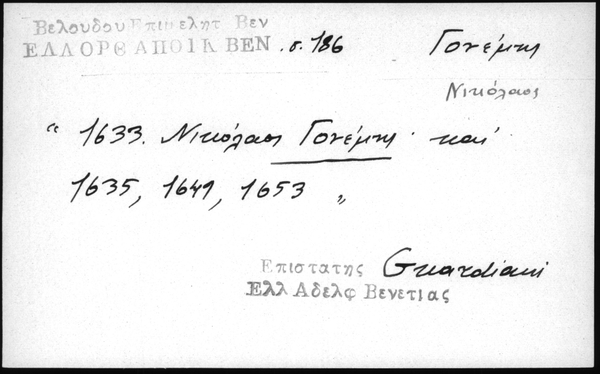 Βελουδου Επιμελητ Βεν
ΕΛΛΟΡΘ ΑΠΟΙΚ ΒΕΝ . σ. 186 Γονέμης
Νικόλαος
“ 1633. Νικόλαος Γονέμης · και
1635, 1649, 1653 „
Επιστατης Guardiani
Ελλ Αδελφ Βενετιας